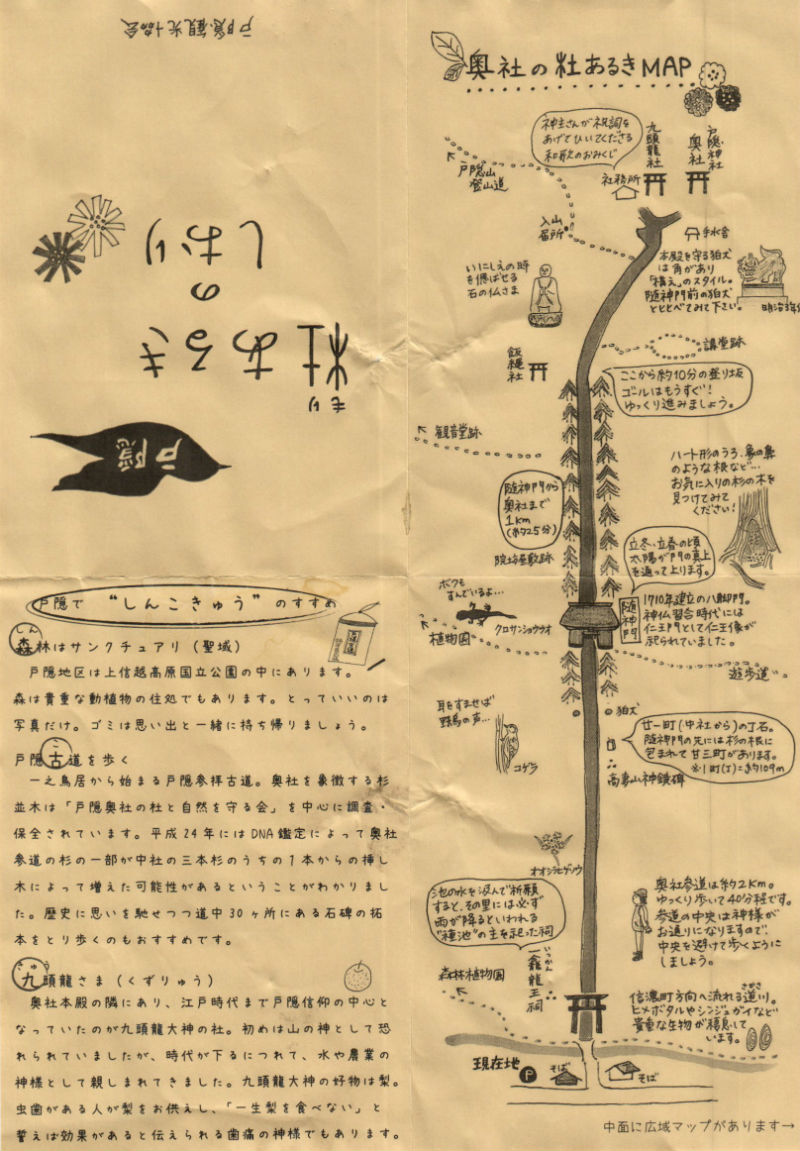 戸隠観光協会
杜あるき
もり
の
しおり
戸隠
戸隠で "しんこきゅう" のすすめ
しん
森林はサンクチュアリ(聖域)
戸隠地区は上信越高原国立公園の中にあります。
森は貴重な動植物の住処でもあります。とっていいのは
写真だけ。ゴミは思い出と一緒に持ち帰りましょう。
こ
戸隠古道を歩く
一之鳥居から始まる戸隠参拝古道。奥社を象徴する杉
並木は「戸隠奥社の杜と自然を守る会」を中心に調査・
保全されています。平成24年にはDNA鑑定によって奥社
参道の杉の一部が中社の三本杉のうちの1本からの挿し
木によって増えた可能性があるということがわかりまし
た。歴史に思いを馳せつつ道中30ヶ所にある石碑の拓
本をとり歩くのもおすすめです。
きゅう
九頭龍さま(くずりゅう)
奥社本殿の隣にあり、江戸時代まで戸隠信仰の中心と
なっていたのが九頭龍大神の社。初めは山の神として恐
れられていましたが、時代が下るにつれて、水や農業の
神様として親しまれてきました。九頭龍大神の好物は梨。
虫歯がある人が梨をお供えし、「一生梨を食べない」と
誓えば効果があると伝えられる歯痛の神様でもあります。
奥社の杜あるきMAP
神主さんが祝詞を
あげてひいてくださる
和歌のおみくじ
九頭龍社
戸隠神社
奥社
社務所
戸隠山
登山道
入山
届所
手水舎
本殿を守る狛犬
は角があり
「構え」のスタイル。
随神門前の狛犬
とくらべてみて下さい。
明治3年
いにしえの時
を偲ばせる
石の仏さま
講堂跡
飯縄社
ここから約10分の登り坂
ゴールはもうすぐ!
ゆっくり進みましょう。
観音堂跡
ハート形のうろ、象の鼻
のような根など…
お気に入りの杉の木を
見つけてみて
ください!
随神門から
奥社まで
1km
(約25分)
院坊屋敷跡
立冬・立春の頃
太陽が門の真上
を通って上ります。
ボクも
すんでいるよ…
クロサンショウウオ
植物園
随神門
1710年建立の八脚門。
神仏習合時代には
仁王門として仁王像が
祀られていました。
遊歩道
耳をすませば
野鳥の声…
コゲラ
狛犬
廿一町(中社から)の丁石。
随神門の先には杉の根に
包まれて廿三町があります。
※1町(丁)=約109m
高妻山神鏡碑
オオジシギゾウ
池の水を汲んで祈願
すると、その里には必ず
雨が降るといわれる
"種池"の主を祀った祠
奥社参道は約2km。
ゆっくり歩いて40分程です。
参道の中央は神様が
お通りになりますので、
中央を避けて歩くように
しましょう。
いっかん
一龕龍王祠
森林植物園
信濃町方向へ流れる逆川。
さかさ
ヒメボタルやシンジュガイなど
貴重な生物が棲息して
います。
現在地
P
そば
そば
中面に広域マップがあります→